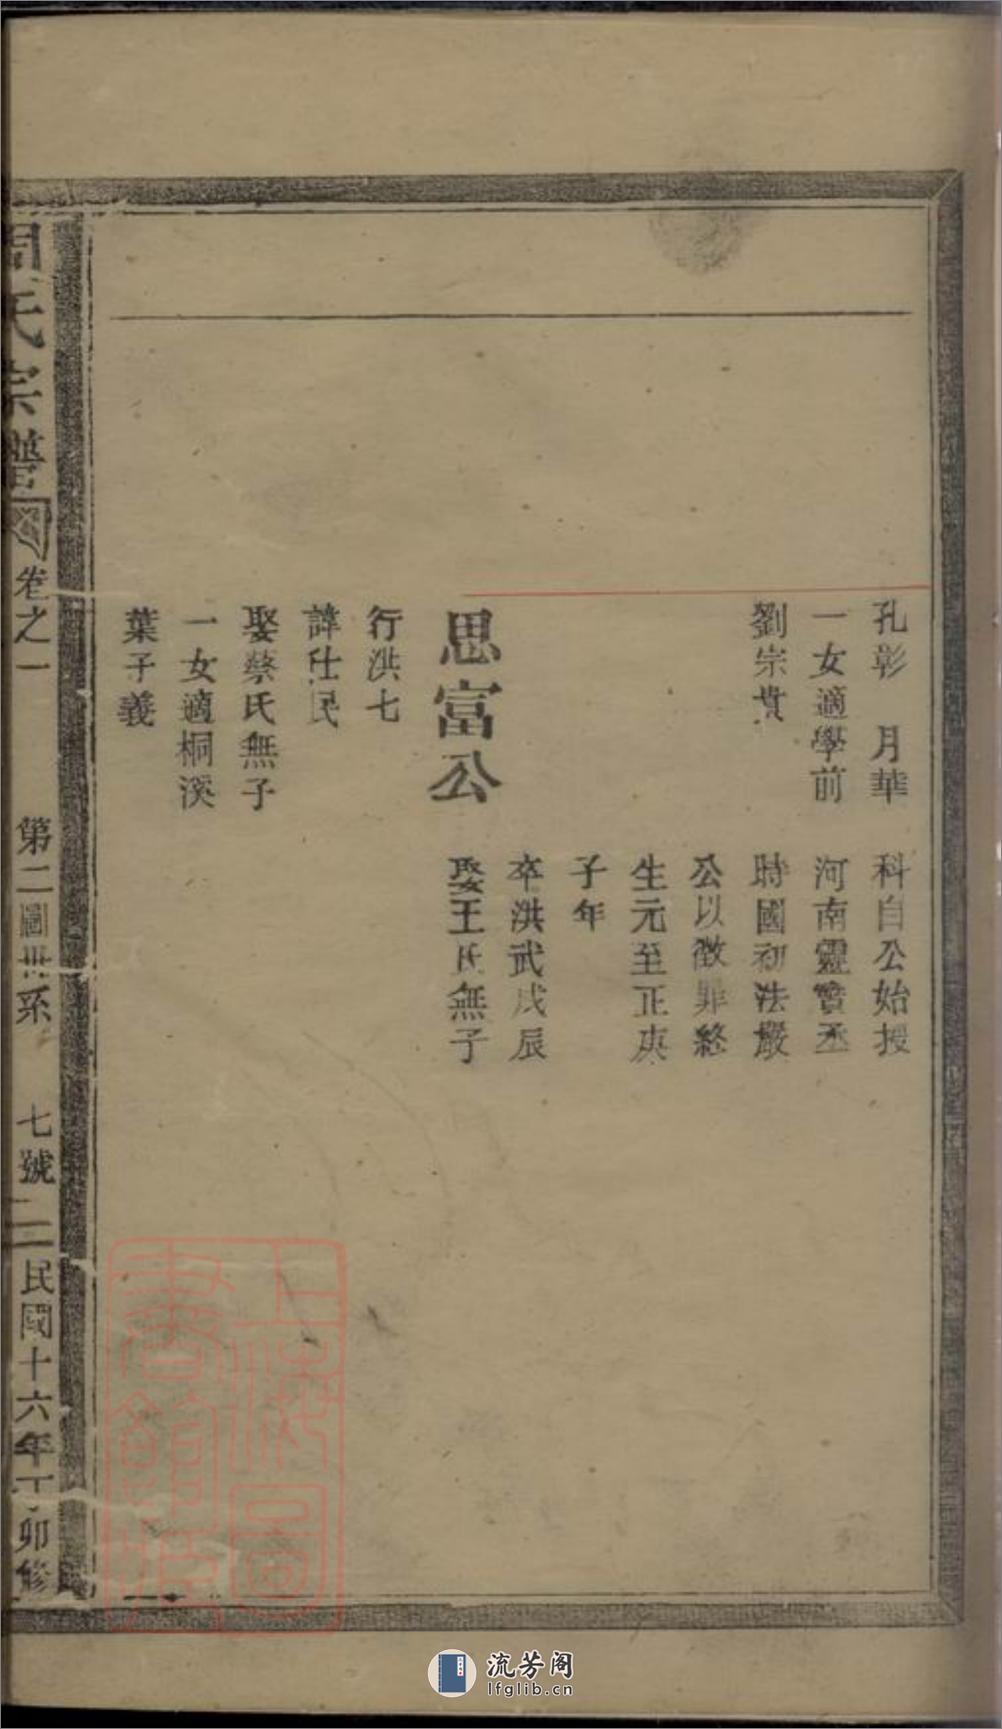 孔彰　月華
一女適學前
劉宗貴
思富公
行洪七
諱仕民
娶蔡氏無子
一女適桐溪
葉子義
科自公始授
河南靈寶丞
時國初法嚴
公以微罪終
生元至正庚
子年
卒洪武戊辰
娶王氏無子
周氏宗譜
卷之一
第二圖世系
七號
二
民國十六年丁卯修
上海圖書館藏
流芳阁
lfglib.cn